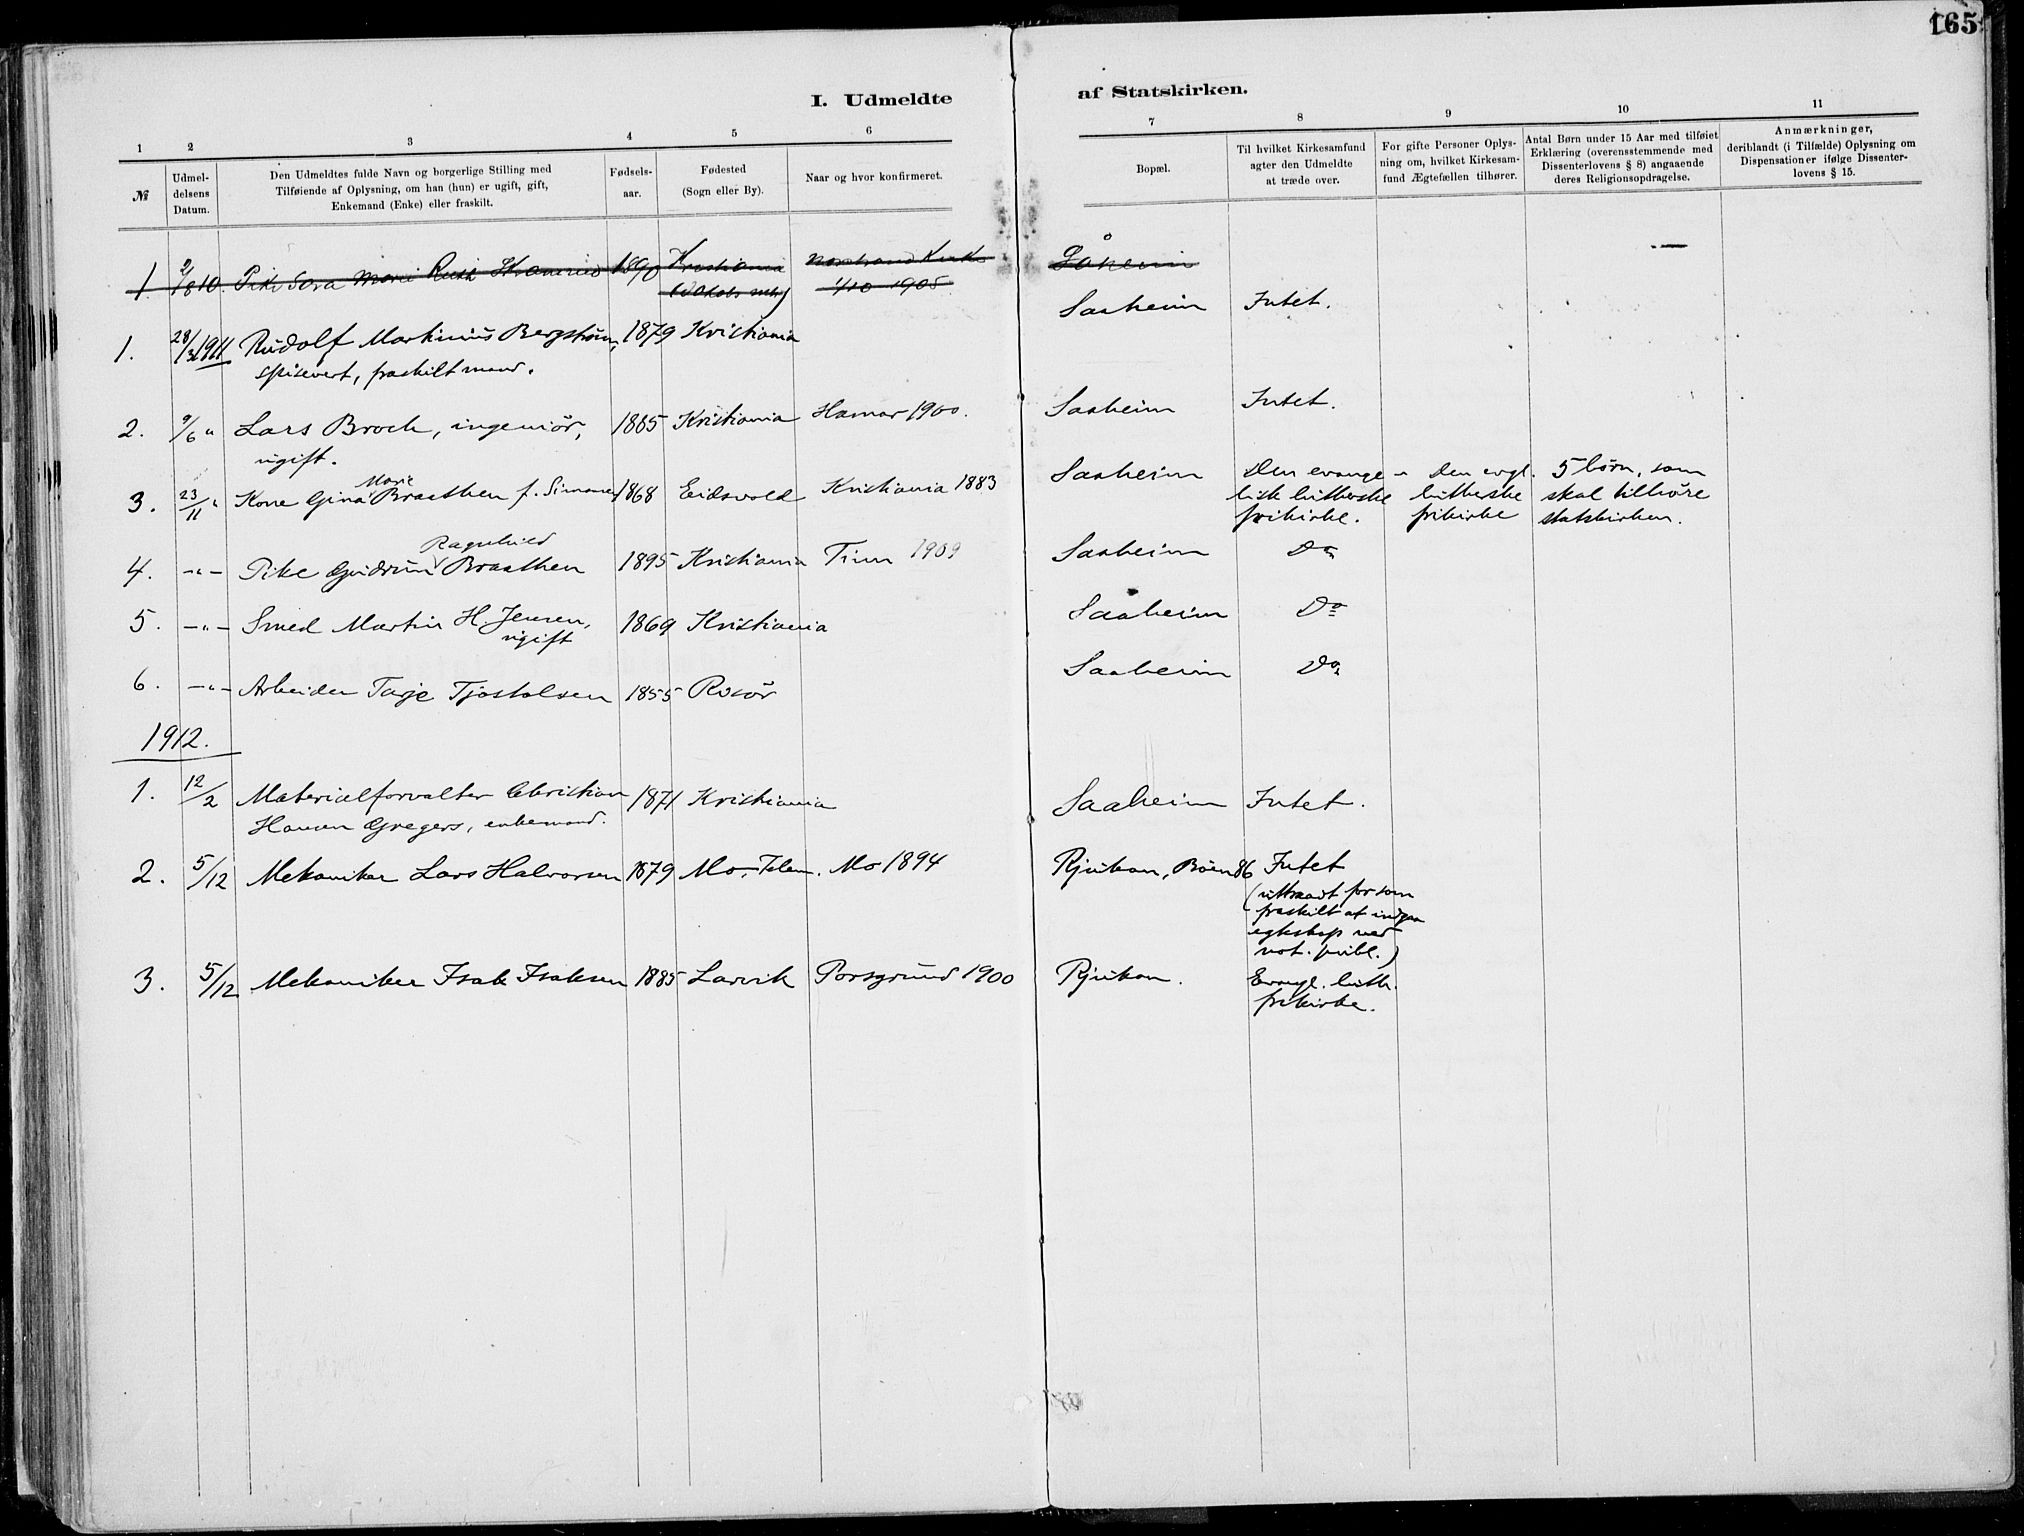 165
I. Udmeldte af Statskirken.
1 2 3 4 5 6 7 8 9 10 11
№
Udmel-
delsens
Datum.
Den Udmeldtes fulde Navn og borgerlige Stilling med
Tilføiende af Oplysning, om han (hun) er ugift, gift,
Enkemand (Enke) eller fraskilt.
Fødsels-
aar.
Fødested
(Sogn eller By).
Naar og hvor konfirmeret.
Bopæl.
Til hvilket Kirkesamfund
agter den Udmeldte
at træde over.
For gifte Personer Oplys-
ning om, hvilket Kirkesam-
fund Ægtefællen tilhører.
Antal Børn under 15 Aar med tilføiet
Erklæring (overensstemmende med
Dissenterlovens § 8) angaaende
deres Religionsopdragelse.
Anmærkninger,
deriblandt (i Tilfælde) Oplysning om
Dispensationer ifølge Dissenter-
lovens § 15.
1. 2/8 10. Pike Sara Marie 1890 Kristiania Nordstrand Kirke Såheim —
(Jakobs meh) 1/10 1905
1. 28/3 1911 Rudolf Martinius Bergström, 1879 Kristiania Saaheim Intet.
spisevert, fraskilt mand.
2. 9/6 " Lars Broch, ingeniör, 1885 Kristiania Hamar 1900. Saaheim Intet.
ugift.
3. 23/11 " Kone Gina Marie Braathen f. Simonsen 1868 Eidsvold Kristiania 1883 Saaheim Den evange- Den evgl. 5 börn, som
lisk lutherske lutherske skal tilhöre
frikirke. frikirke statskirken.
4. -"- Pike Gudrun Ragnhild Braathen 1895 Kristiania Tinn 1909 Saaheim Do
5. -"- Smed Martin H. Jensen, 1869 Kristiania Saaheim Do
ugift
6. -"- Arbeider Tarje Tjostolsen 1855 Risör Saaheim Do
1912.
1. 12/2 Materialforvalter Christian 1871 Kristiania Saaheim Intet.
Hansen Gregers, enkemand.
2. 5/12 Mekaniker Lars Halvorsen 1879 Mo, Telem. Mo 1894 Rjukan, Böen 86 Intet
(uttraadt for som
fraskilt at indgaa
egteskap ved
not. publ.)
3. 5/12 Mekaniker Isak Isaksen 1885 Larvik Porsgrund 1900 Rjukan. Evangl. luth.
frikirke.